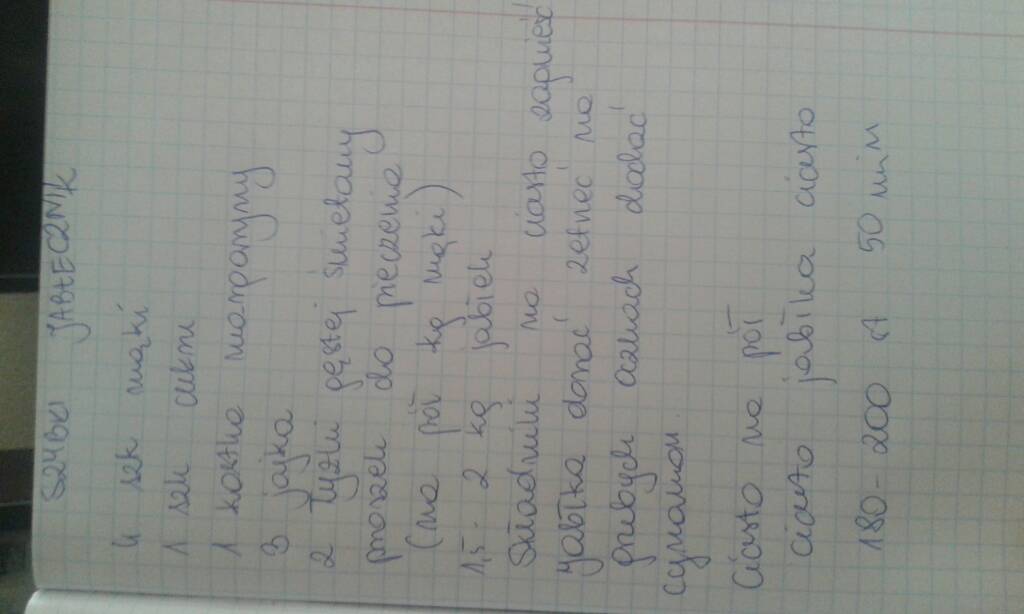 SZYBKI JABŁECZNIK
4 szk mąki
1 szk cukru
1 kostka margaryny
3 jajka
2 łyżki gęstej śmietany
proszek do pieczenia
(na pół kg mąki)
1,5 - 2 kg jabłek
Składniki na ciasto zagnieść
Jabłka obrać zetrzeć na
grubych oczkach dodać
cynamon
Ciasto na pół
ciasto jabłka ciasto
180 - 200 st 50 min